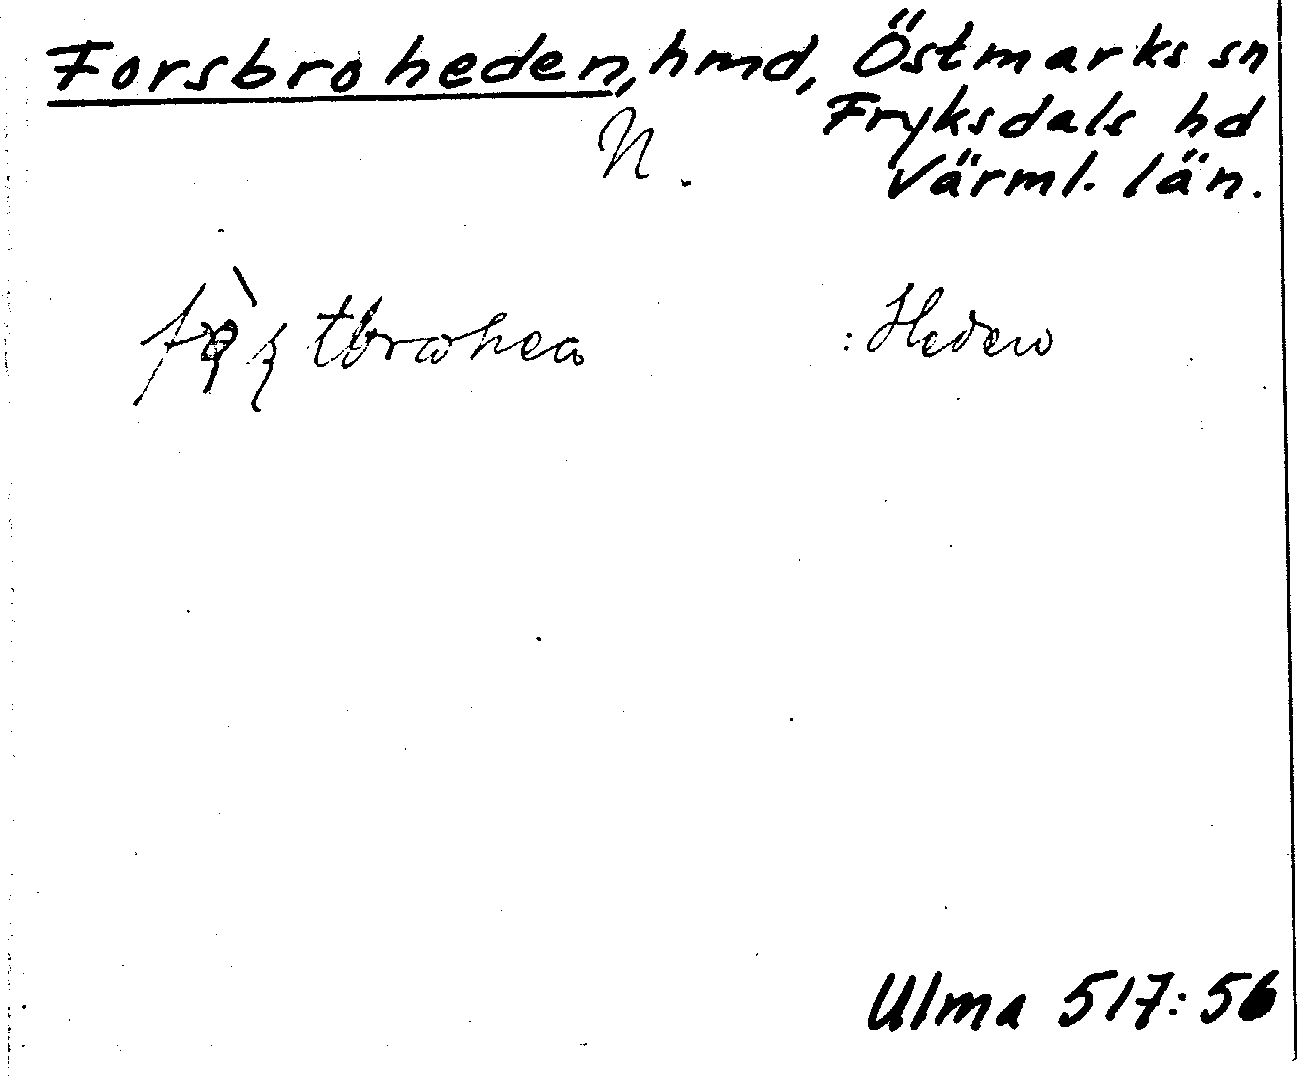 Forsbroheden, hmd, Östmarks sn
Fryksdals hd
N.
Värml. län.
: Heden
Ulma 517:56